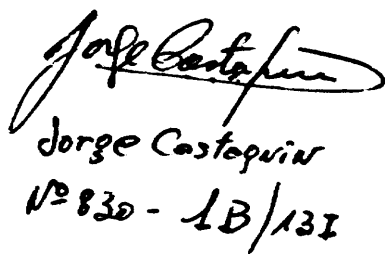 Jorge Castaquin
Jorge Castaquin
Nº 830 - 1B/13I